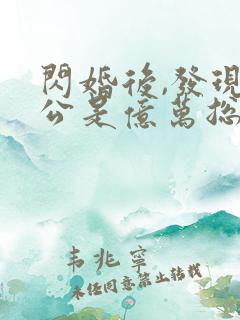 閃婚後,發現
公是億萬總
韦兆寧
未经同意禁止转载